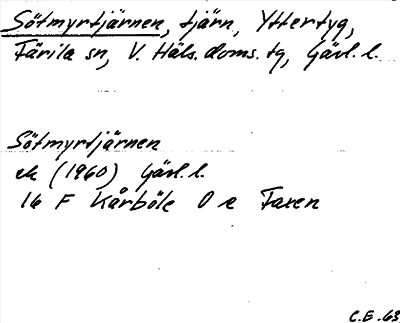 Sötmyrtjärnen, tjärn, Yttertyg,
Färila sn, V. Häls. doms. tg, Gävl. l.
Sötmyrtjärnen
ek (1960) Gävl. l.
16 F Kårböle O e Faxen
C.E. 63